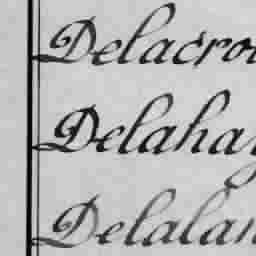 Delacro
Delaha
Delalan